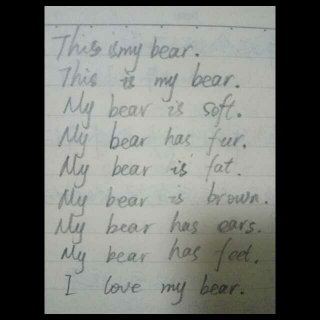 This is my bear.
This is my bear.
My bear is soft.
My bear has fur.
My bear is fat.
My bear is brown.
My bear has ears.
My bear has feet.
I love my bear.